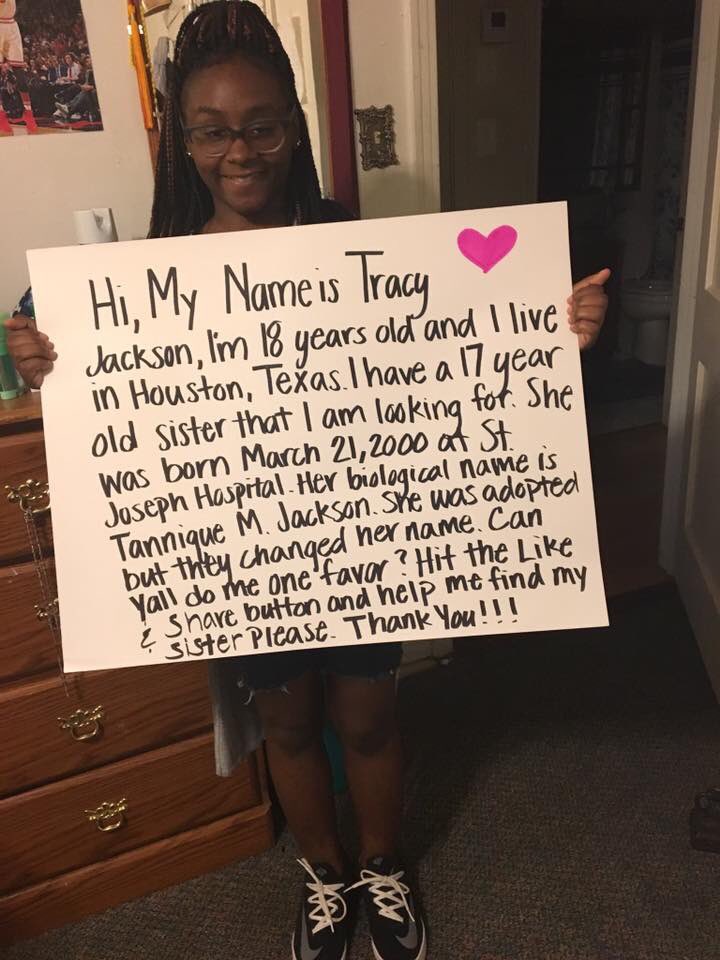 Hi, My Name is Tracy
Jackson, I'm 18 years old and I live
in Houston, Texas. I have a 17 year
old sister that I am looking for. She
was born March 21, 2000 at St.
Joseph Hospital. Her biological name is
Tannique M. Jackson. She was adopted
but they changed her name. Can
Yall do me one favor? Hit the Like
& Share button and help me find my
sister Please. Thank You!!!